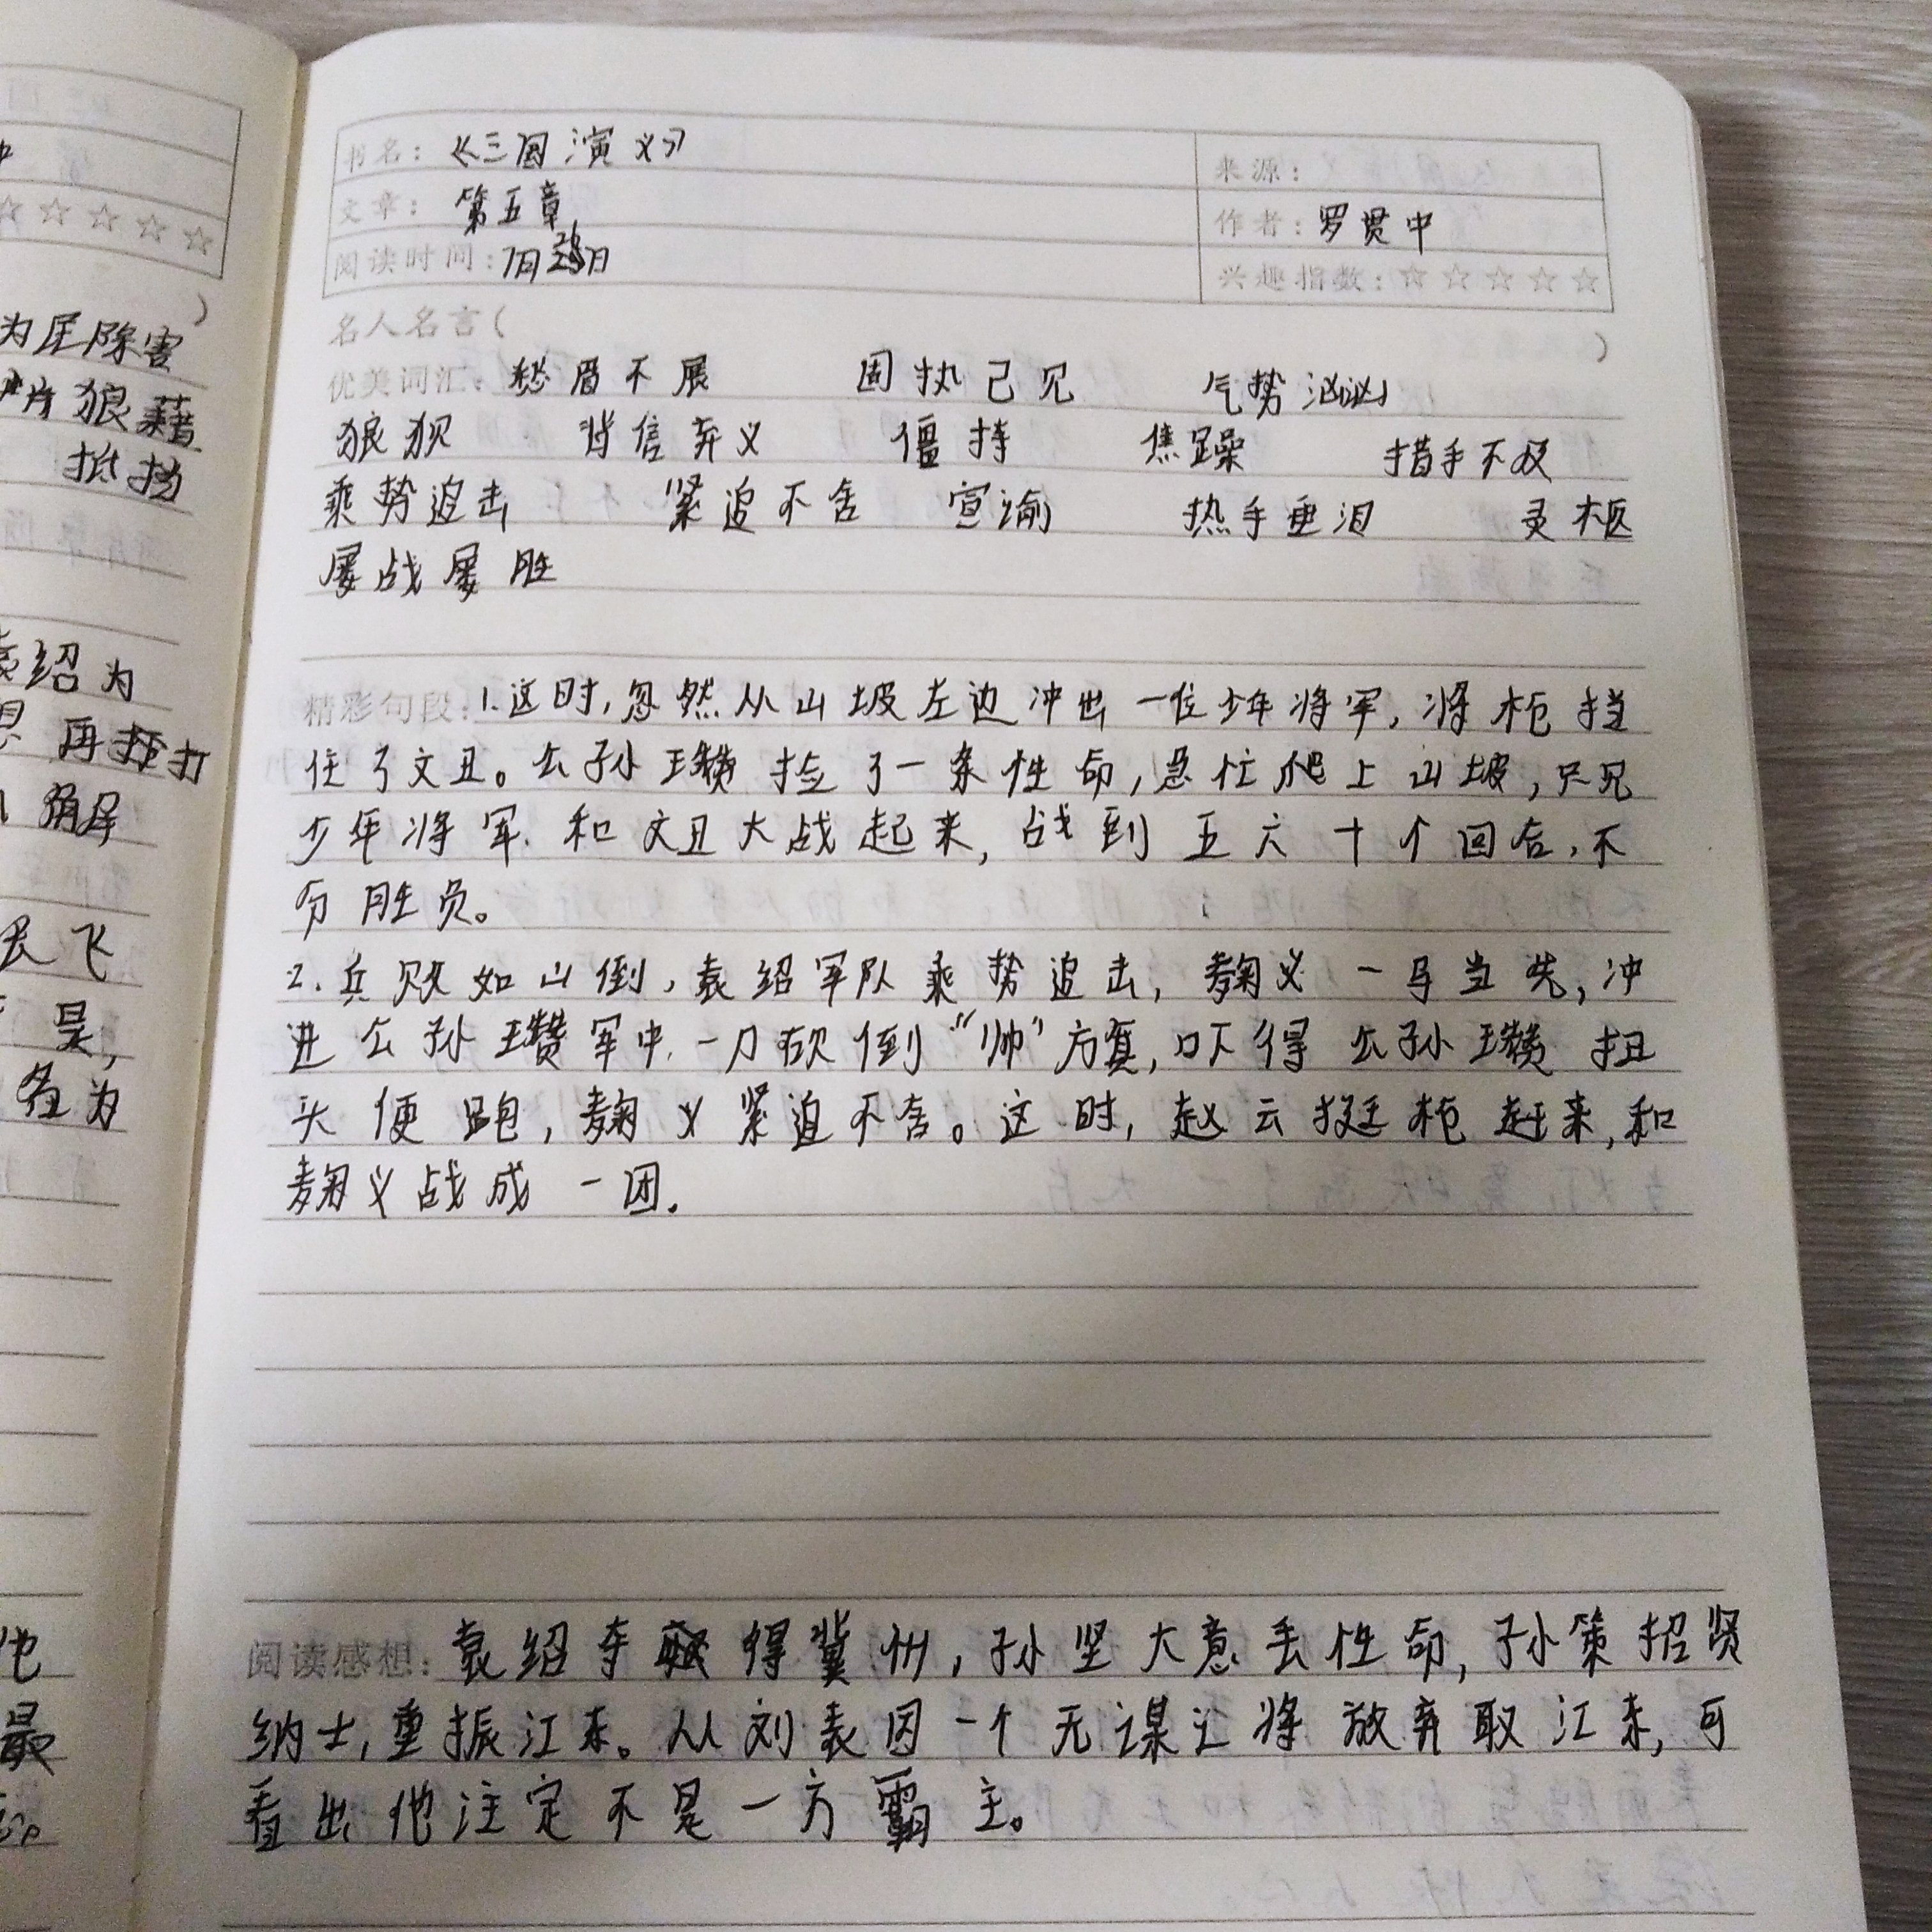 书名：《三国演义》
来源：
文章：第五章
作者：罗贯中
阅读时间：7月26日
兴趣指数：☆☆☆☆☆
名人名言（ ）
优美词汇：愁眉不展 固执己见 气势汹汹
狼狈 背信弃义 僵持 焦躁 措手不及
乘势追击 紧追不舍 宣谕 热手垂泪 灵柩
屡战屡胜
精彩句段：1.这时，忽然从山坡左边冲出一位少年将军，将枪挡
住了文丑。公孙瓒捡了一条性命，急忙爬上山坡，只见
少年将军和文丑大战起来，战到五六十个回合，不
分胜负。
2.兵败如山倒，袁绍军队乘势追击，麴义一马当先，冲
进公孙瓒军中，一刀砍倒“帅”方旗，吓得公孙瓒扭
头便跑，麴义紧追不舍。这时，赵云挺枪赶来，和
麴义战成一团。
阅读感想：袁绍夺得冀州，孙坚大意丢性命，孙策招贤
纳士，重振江东。从刘表因一个无谋之将放弃取江东，可
看出他注定不是一方霸主。
☆☆☆☆☆
为民除害
狼藉
抵挡
袁绍为
再抵打
飞
是，
备为
他
最